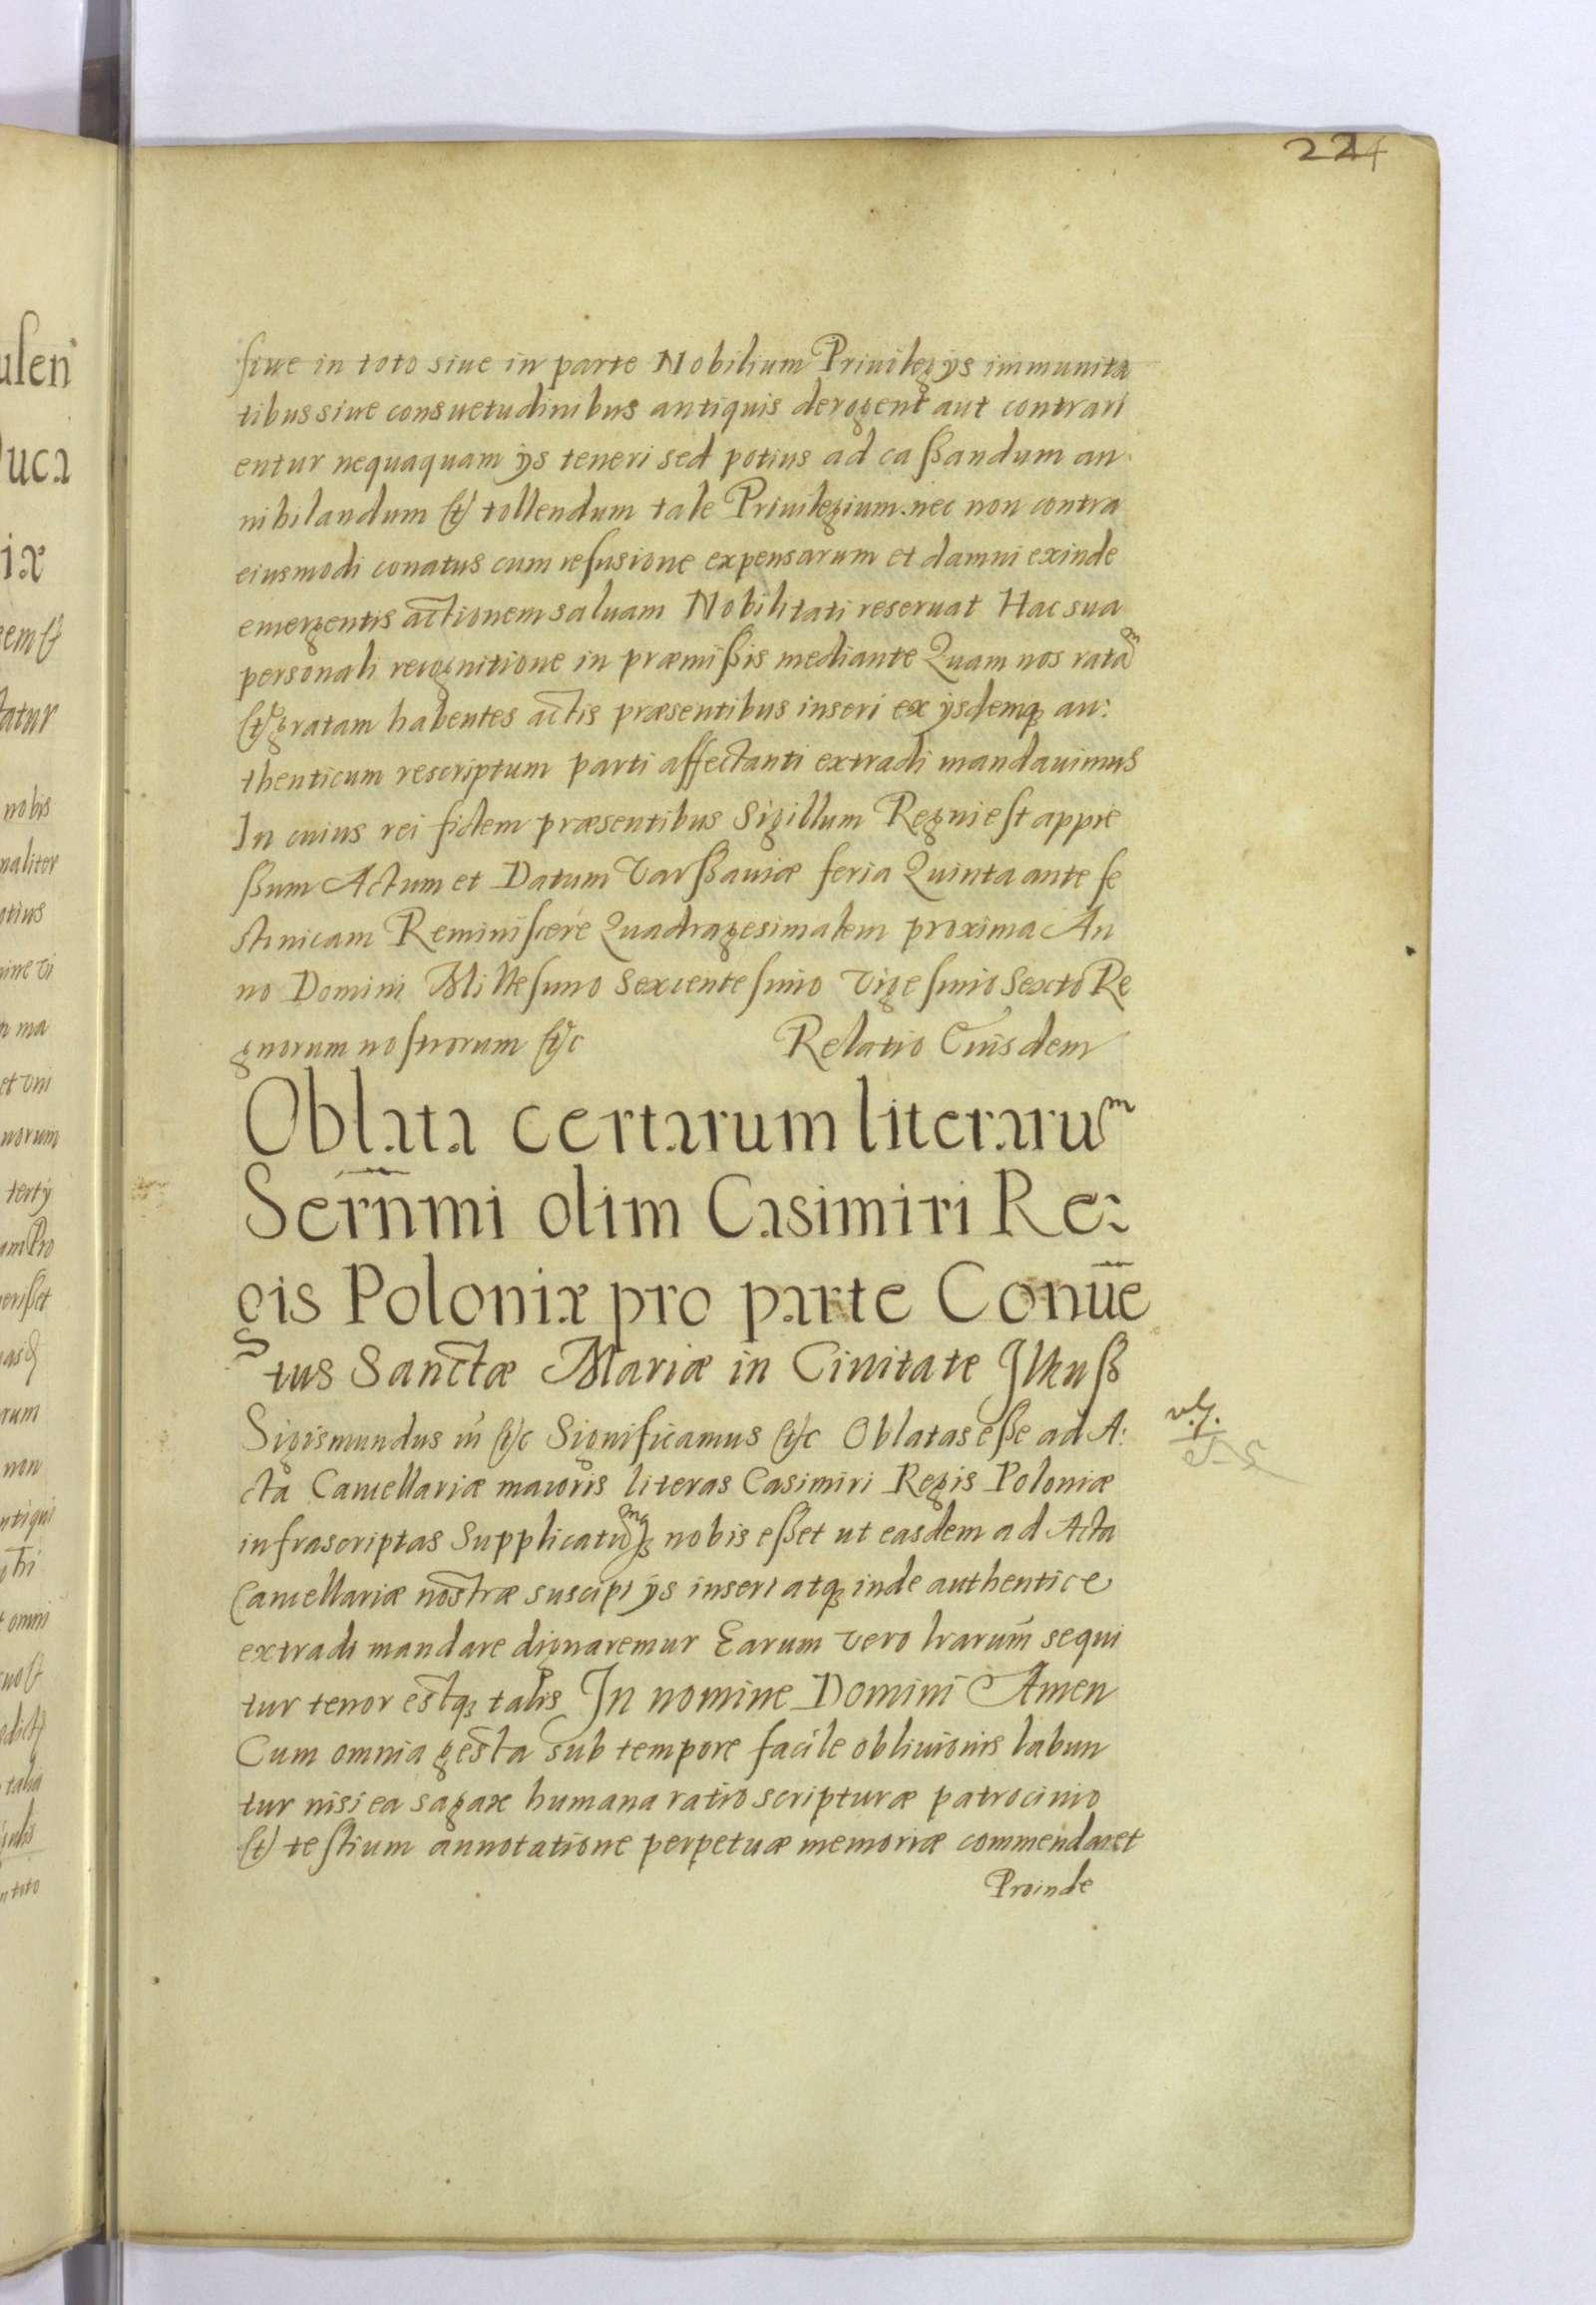 224
siue in toto siue in parte Nobilium Priuilegijs immunita
tibus siue consuetudinibus antiquis derogent aut contrari
entur nequaquam ijs teneri sed potius ad caßandum an
nihilandum et tollendum tale Priuilegium nec non contra
eiusmodi conatus cum refusione expensarum et damni exinde
emergentis actionem saluam Nobilitati reseruat Hac sua
personali recognitione in præmißis mediante Quam nos rata͂m
et gratam habentes actis præsentibus inseri ex ijsdemq au:
thenticum rescriptum parti affectanti extradi mandauimus
In cuius rei fidem præsentibus Sigillum Regni est appre
ßum Actum et Datum Varßauiæ feria Quinta ante fe
stinicam Reminiscere Quadragesimalem proxima An
no Domini Millesimo Sexcentesimo Vigesimo Sexto Re
gnorum nostrorum etc Relatio Eiusdem
Oblata certarum literarum
Serñmi olim Casimiri Re:
gis Poloniæ pro parte Conūe
tus Sanctæ Mariæ in Ciuitate Ilkuß
Sigismundus iñ etc Significamus etc Oblatas eße ad A:
cta Cancellariæ maioris literas Casimiri Regis Poloniæ
infrascriptas Supplicatumq nobis eßet ut easdem ad Acta
Cancellariæ nostræ suscipi ijs inseri atq inde authentice
extradi mandare dignaremur Earum vero lrarum̃ sequi
tur tenor estq talis In nomine Domini Amen
Cum omnia gesta sub tempore facile obliuionis labun
tur nisi ea sagax humana ratio scripturæ patrocinio
et testium annotatione perpetuæ memoriæ commendaret
Proinde